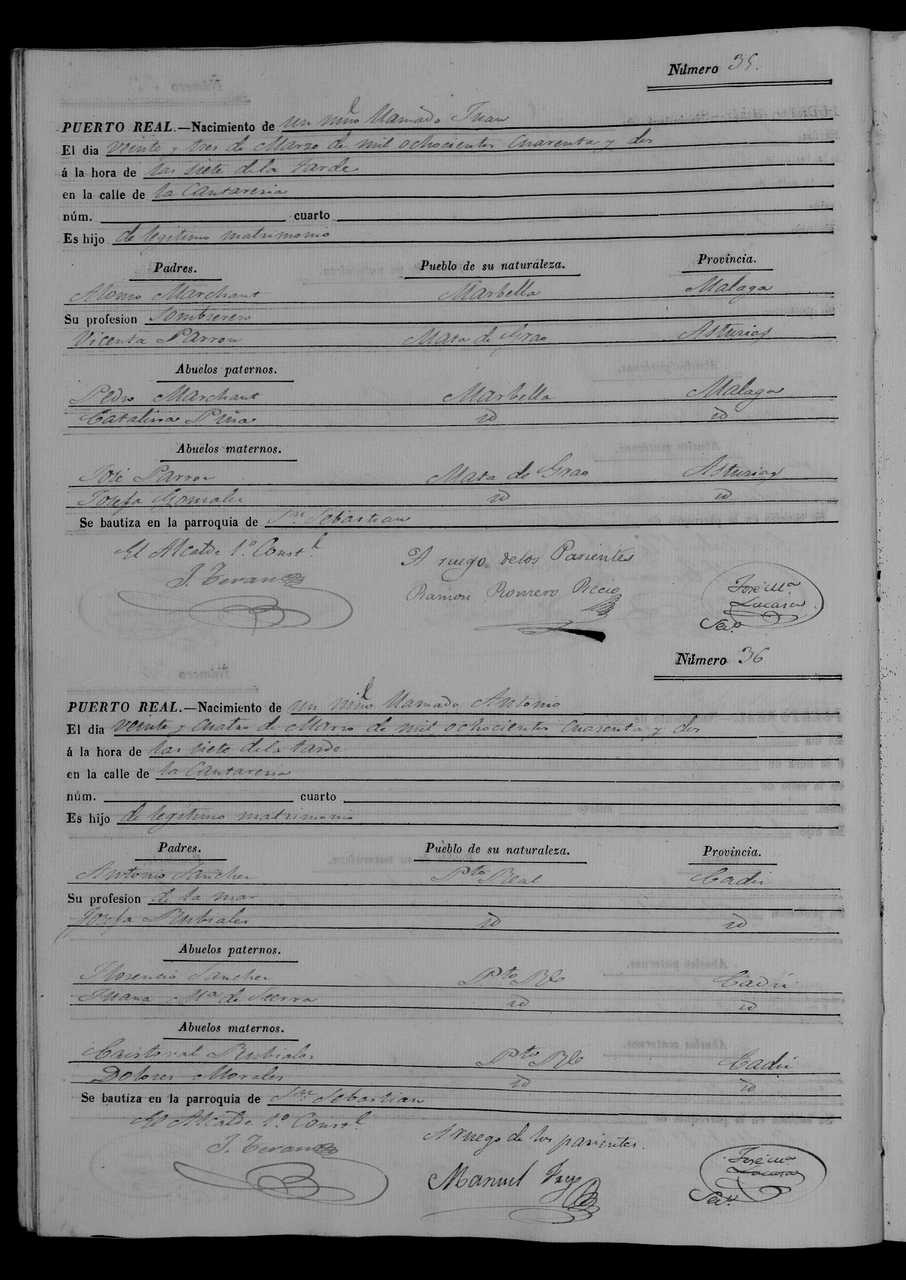 Número 35.
PUERTO REAL.—Nacimiento de un niño llamado Juan
El dia veinte y tres de Marzo de mil ochocientos cuarenta y dos
á la hora de las siete de la tarde
en la calle de la Cantareria
núm. cuarto
Es hijo de legitimo matrimonio
Padres. Pueblo de su naturaleza. Provincia.
Alonso Marchant Marbella Malaga
Su profesion Sombrerero
Vicenta Parron Masa de Grao Asturias
Abuelos paternos.
Pedro Marchant Marbella Malaga
Catalina Peña id id
Abuelos maternos.
José Parron Masa de Grao Asturias
Josefa Gonzalez id id
Se bautiza en la parroquia de Sn. Sebastian
El Alcalde 1.º Constl. A ruego de los Parientes
J. Teran Ramon Romero Jose Ma.
Lucasa
Seco.
Número 36
PUERTO REAL.—Nacimiento de un niño llamado Antonio
El dia veinte y cuatro de Marzo de mil ochocientos cuarenta y dos
á la hora de las siete de la tarde
en la calle de la Cantareria
núm. cuarto
Es hijo de legitimo matrimonio
Padres. Pueblo de su naturaleza. Provincia.
Antonio Sanchez Pto. Real Cadiz
Su profesion de la mar
Josefa Rubiales id id
Abuelos paternos.
Florencio Sanchez Pto. Rl. Cadiz
Juana Ma. de Sierra id id
Abuelos maternos.
Cristoval Rubiales Pto. Rl. Cadiz
Dolores Morales id id
Se bautiza en la parroquia de Sn. Sebastian
El Alcalde 1.º Constl. A ruego de los parientes.
J. Teran Manuel Jose Ma.